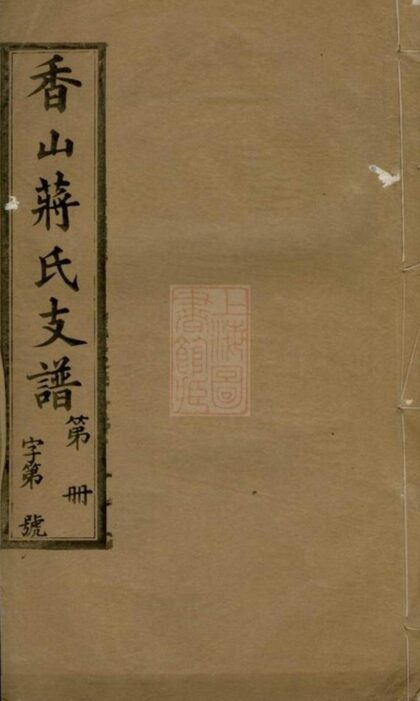 香山蔣氏支譜
第 冊
字第 號
上海图
書館藏